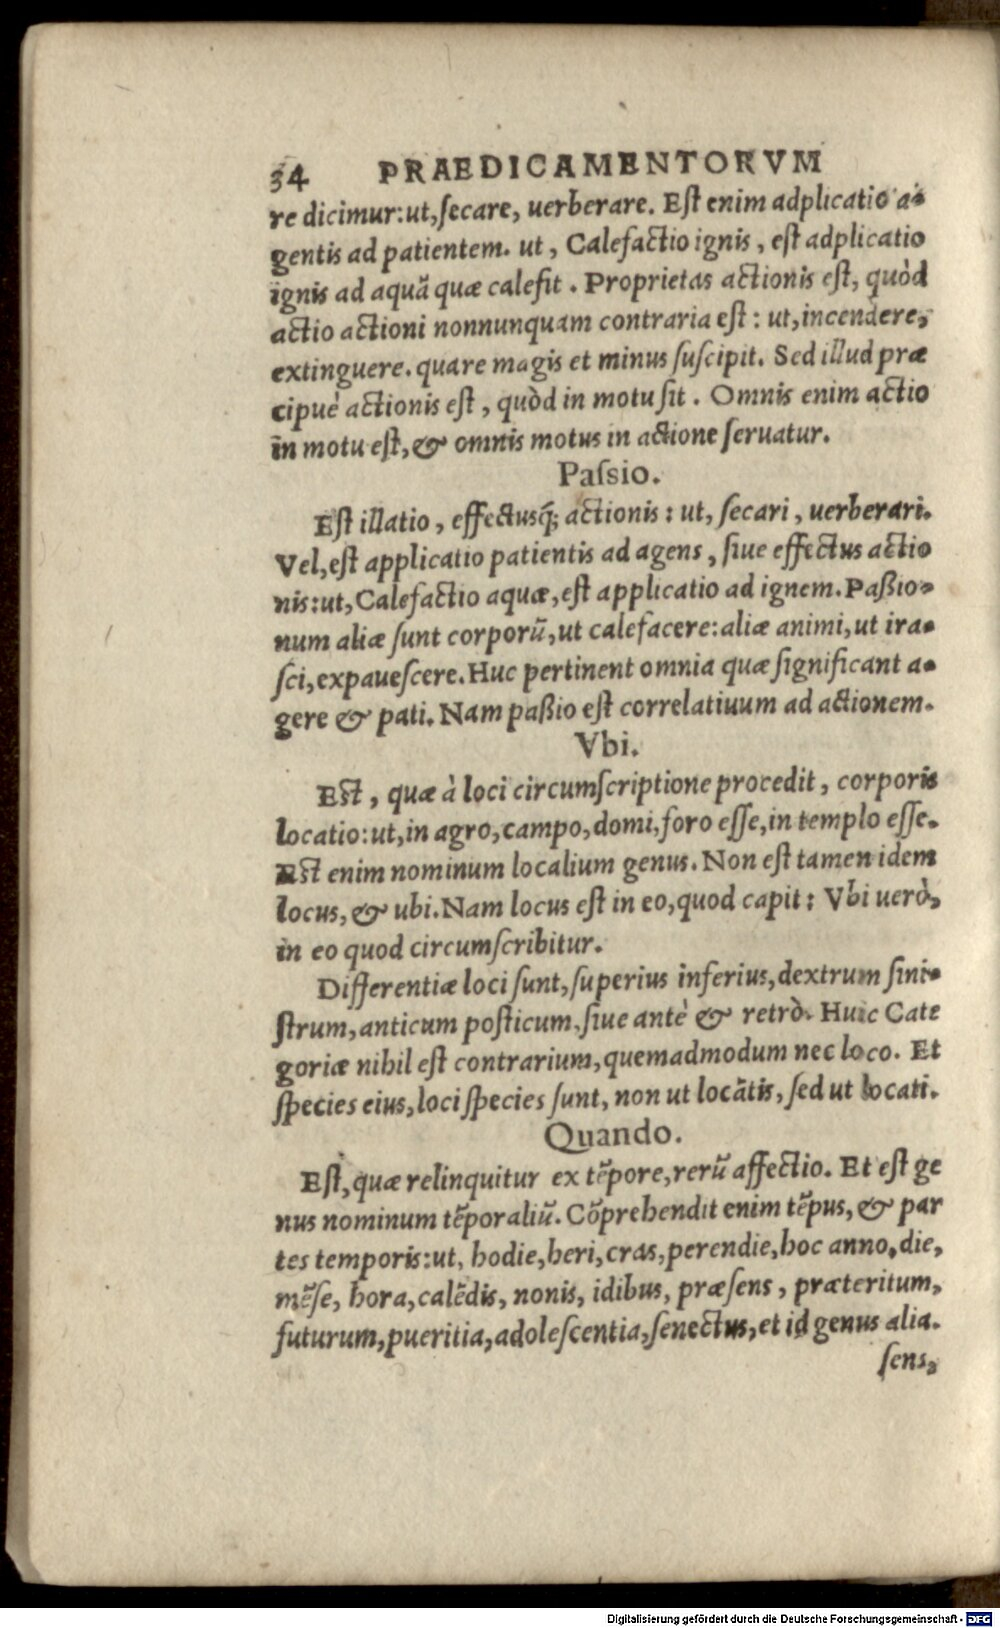 34 PRAEDICAMENTORVM
re dicimur: ut, ſecare, uerberare. Eſt enim adplicatio a-
gentis ad patientem. ut, Calefactio ignis, eſt adplicatio
ignis ad aquã quæ calefit. Proprietas actionis eſt, quòd
actio actioni nonnunquam contraria eſt: ut, incendere,
extinguere. quare magis et minus ſuſcipit. Sed illud præ
cipuè actionis eſt, quòd in motu ſit. Omnis enim actio
in motu eſt, & omnis motus in actione ſeruatur.
Paſsio.
Eſt illatio, effectusq́; actionis: ut, ſecari, uerberari.
Vel, eſt applicatio patientis ad agens, ſiue effectus actio
nis: ut, Calefactio aquæ, eſt applicatio ad ignem. Paßio-
num aliæ ſunt corporũ, ut calefacere: aliæ animi, ut ira-
ſci, expaueſcere. Huc pertinent omnia quæ ſignificant a-
gere & pati. Nam paßio eſt correlatiuum ad actionem.
Vbi.
Eſt, quæ à loci circumſcriptione procedit, corporis
locatio: ut, in agro, campo, domi, foro eſſe, in templo eſſe.
Eſt enim nominum localium genus. Non eſt tamen idem
locus, & ubi. Nam locus eſt in eo, quod capit: Vbi uerò,
in eo quod circumſcribitur.
Differentiæ loci ſunt, ſuperius inferius, dextrum ſini-
ſtrum, anticum poſticum, ſiue antè & retrò. Huic Cate
goriæ nihil eſt contrarium, quemadmodum nec loco. Et
ſpecies eius, loci ſpecies ſunt, non ut locãtis, ſed ut locati.
Quando.
Eſt, quæ relinquitur ex tẽpore, rerũ affectio. Et eſt ge
nus nominum tẽporaliũ. Cõprehendit enim tẽpus, & par
tes temporis: ut, hodie, heri, cras, perendie, hoc anno, die,
mẽſe, hora, calẽdis, nonis, idibus, præſens, præteritum,
futurum, pueritia, adoleſcentia, ſenectus, et id genus alia.
ſens,
Digitalisierung gefördert durch die Deutsche Forschungsgemeinschaft - DFG